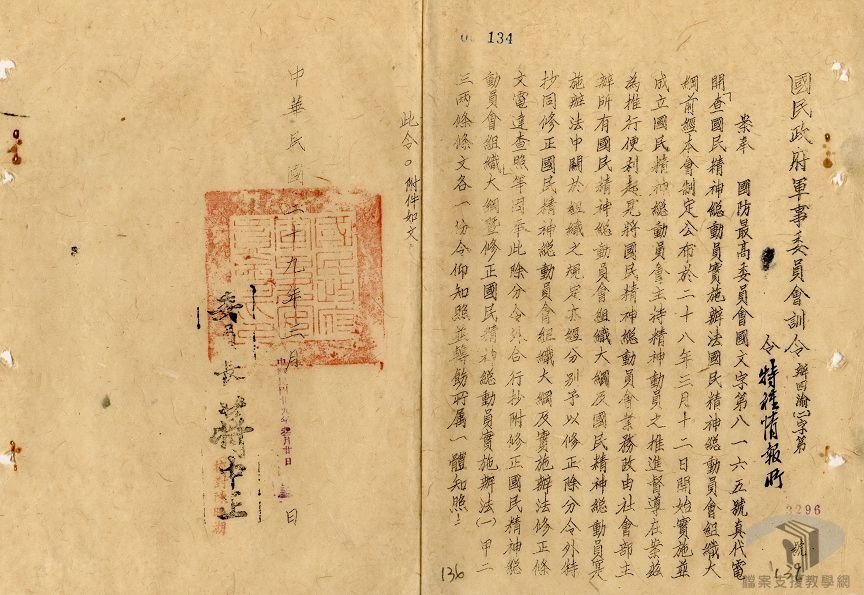 134
國民政府軍事委員會訓令 辦四渝(一)字第
3296
號
令特種情報所
案奉 國防最高委員會國文字第八一六五號真代電
開「查國民精神總動員實施辦法國民精神總動員會組織大
綱前經本會制定公布於二十八年三月十二日開始實施並
成立國民精神總動員會主持精神動員之推進督導在案茲
為推行便利起見將國民精神總動員會業務改由社會部主
辦所有國民精神總動員會組織大綱及國民精神總動員實
施辦法中關於組織之規定亦經分別予以修正除分令外特
抄同修正國民精神總動員會組織大綱及實施辦法修正條
文電達查照」等因奉此除分令外合行抄附修正國民精神總
動員會組織大綱暨修正國民精神總動員實施辦法(一)甲二
三兩條條文各一份令仰知照並轉飭所屬一體知照!
此令。附件如文
中華民國二十九年三月 日
委員長蔣中正
136
139
檔案支援教學網